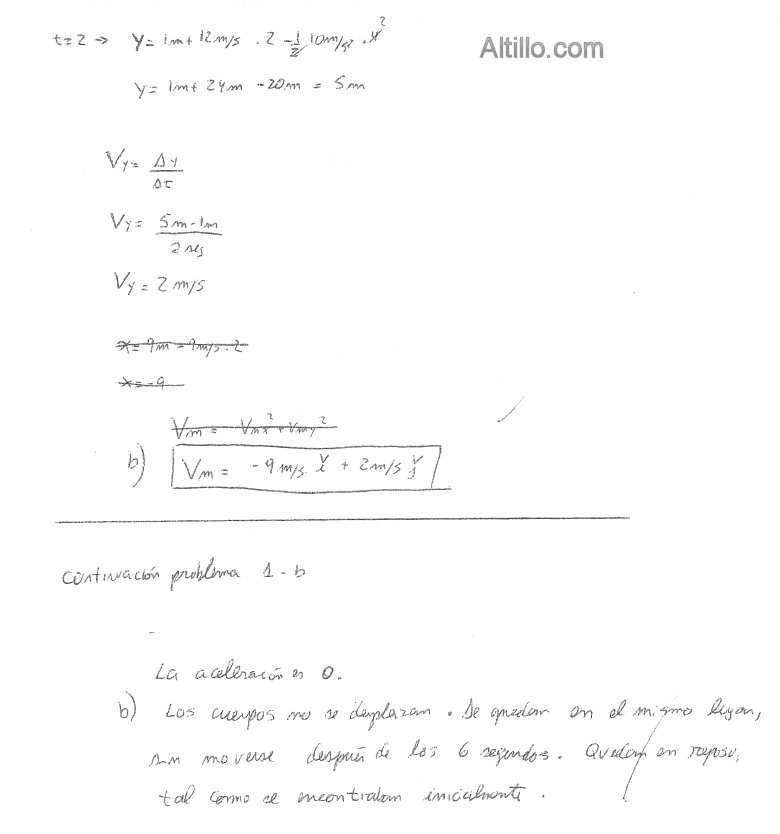 t=2 → y= 1m+12m/s . 2 - 1/2 10m/s² . 4²
Altillo.com
y= 1m+ 24m - 20m = 5m
Vy= Δy/Δt
Vy= 5m-1m / 2 seg
Vy= 2 m/s
x= 9m - 9m/s . 2
x= -9
Vm = Vmx² + Vmy²
b) Vm = -9m/s ĭ + 2m/s j̆
continuación problema 1-b
-
La aceleración es 0.
b) Los cuerpos no se desplazan. Se quedan en el mismo lugar,
sin moverse después de los 6 segundos. Quedan en reposo,
tal como se encontraban inicialmente.